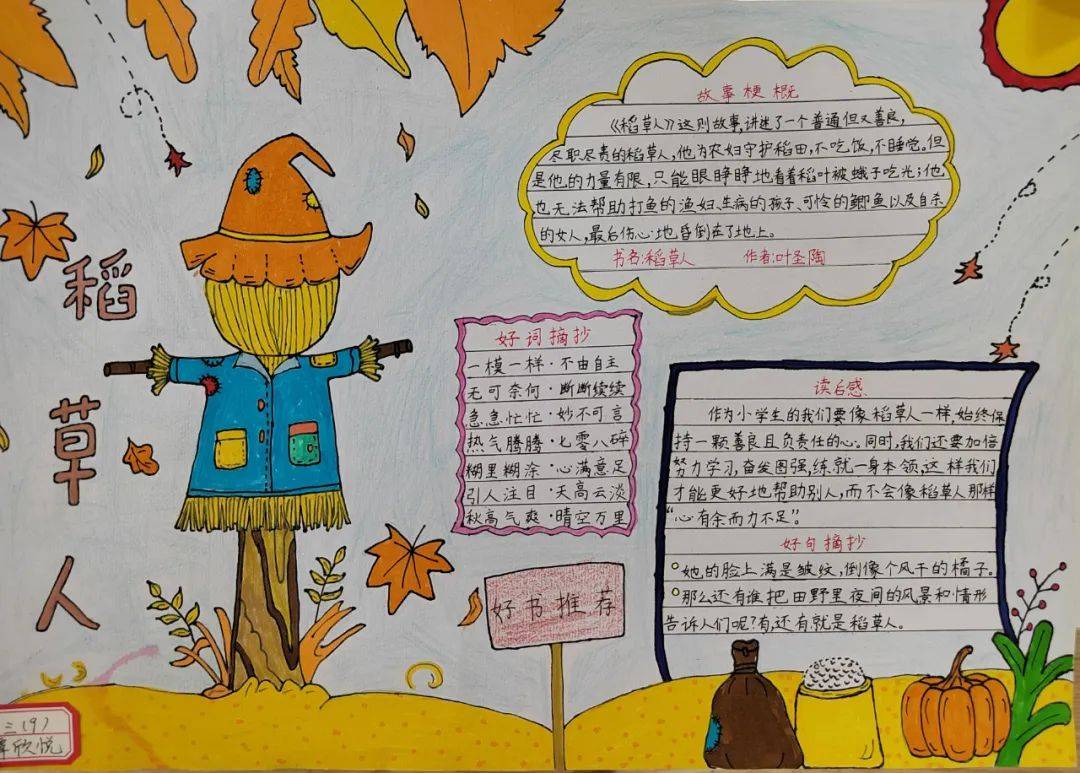 稻草人
故事梗概
《稻草人》这则故事,讲述了一个普通但又善良,
尽职尽责的稻草人,他为农妇守护稻田,不吃饭,不睡觉。但
是他的力量有限,只能眼睁睁地看着稻叶被蛾子吃光;他
也无法帮助打鱼的渔妇、生病的孩子、可怜的鲫鱼以及自杀
的女人,最后伤心地昏倒在了地上。
书名:稻草人 作者:叶圣陶
好词摘抄
一模一样·不由自主
无可奈何·断断续续
急急忙忙·妙不可言
热气腾腾·七零八碎
糊里糊涂·心满意足
引人注目·天高云淡
秋高气爽·晴空万里
读后感
作为小学生的我们要像稻草人一样,始终保
持一颗善良且负责任的心。同时,我们还要加倍
努力学习,奋发图强,练就一身本领,这样我们
才能更好地帮助别人,而不会像稻草人那样
“心有余而力不足”。
好句摘抄
她的脸上满是皱纹,倒像个风干的橘子。
那么还有谁把田野里夜间的风景和情形
告诉人们呢?有,还有就是稻草人。
好书推荐
三(9)
欣悦